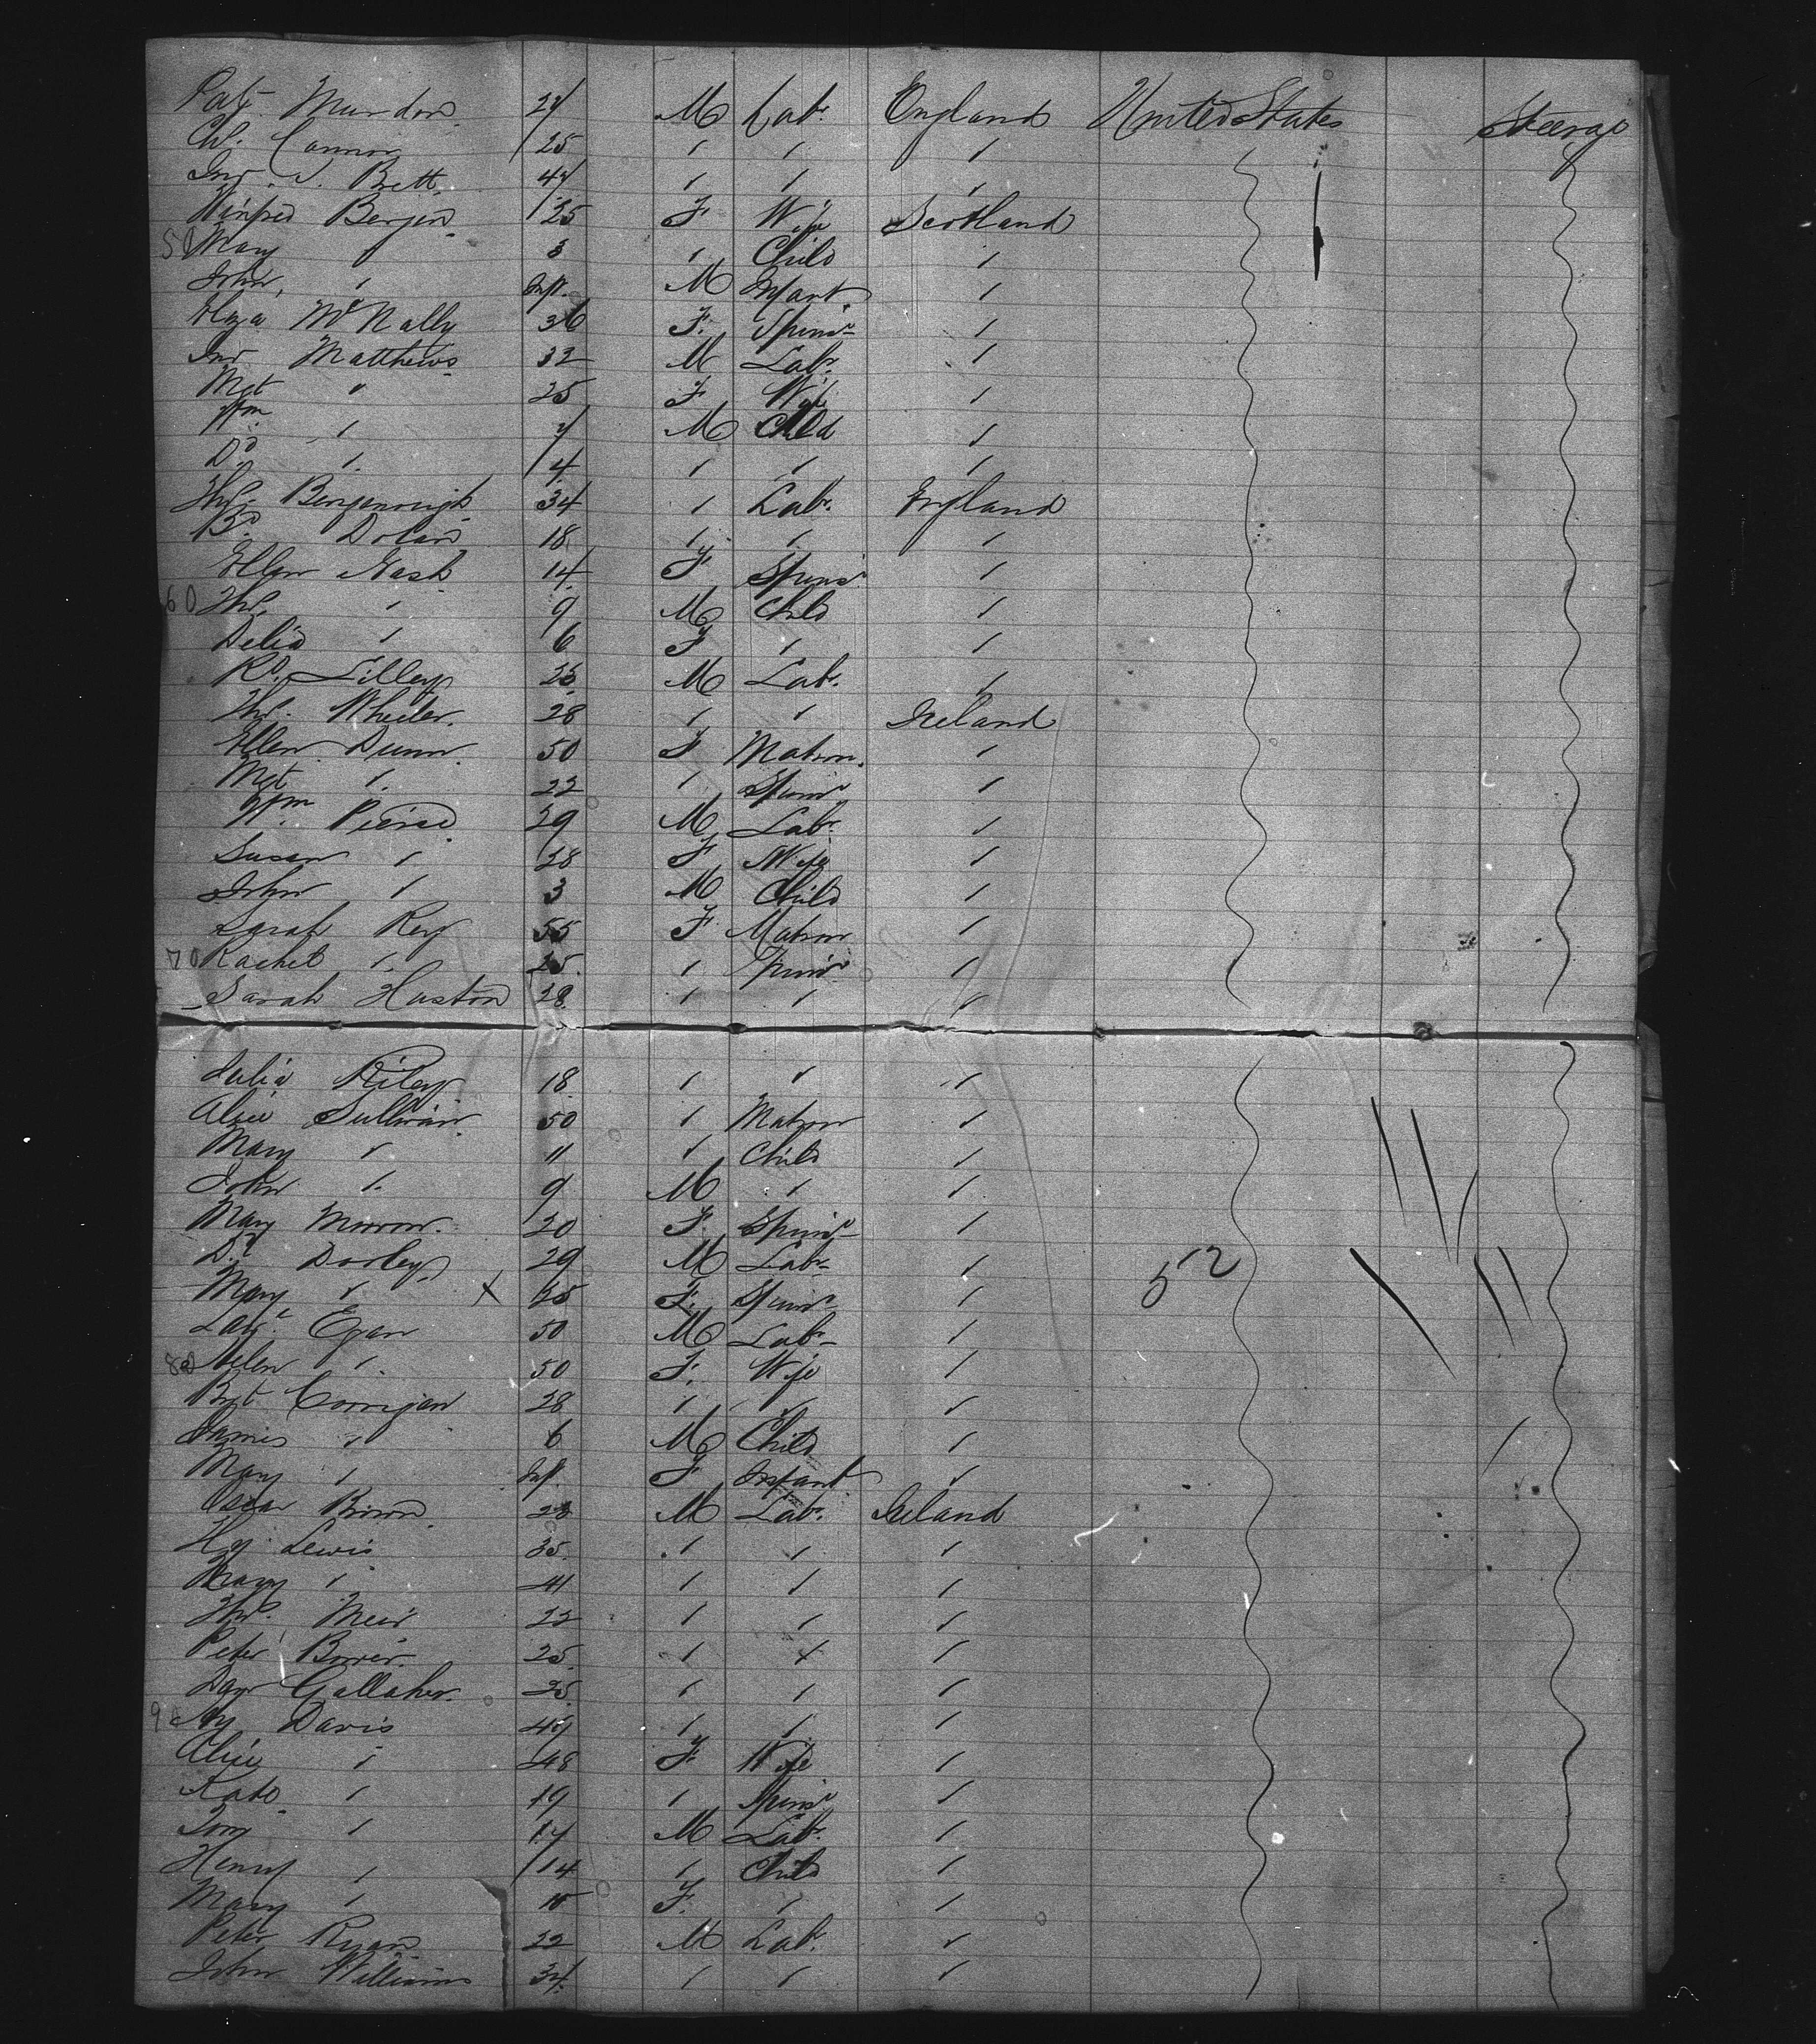 Paty Murdon 27 M Labr. England United States Steerage
Ch. Connor 25 " " "
Jno. J. Brett 47 " " "
Winfred Bergin 25 F Wife Scotland
50 Mary " 3 " Child "
John " Inft. M Infant "
Eliza McNally 36 F. Spinsr "
Jno Matthews 32 M Labr. "
Mgt " 25 F Wife "
Wm " 7 M Child "
Dd " 4 " " "
Ths. 34 " Labr. England
Bd. Dolan 18 " " "
Ellen Nash 14 F Spinsr "
60 Ths. " 9 M Child "
Delia " 6 F " "
Rd. Lilley 25 M Labr. "
Ths. Wheeler. 28 " " Ireland
Ellen Dunn 50 F Matron. "
Mgt " 22 " Spinsr "
Wm Pierse 29 M Labr. "
Susan " 28 F Wife "
John " 3 M Child "
Sarah Rey 55 F Matron "
70 Rachel " 25 " Spinsr "
Sarah Huston 28 " " "
Julia Riley 18 " " "
Alice Sullivan 50 " Matron "
Mary " 11 " Child "
John " 9 M " "
Mary Morrow 20 F. Spinsr "
Dl. Dorley 29 M Labr. " 52
Mary " X 25 F. Spinsr "
Lau. Egan 50 M Labr "
80 Helen " 50 F. Wife "
Bgt Corrigan 28 " " "
James " 6 M Child "
Mary " Inf. F Infant "
Oscar Brown 28 M Labr. Ireland
Hy. Lewis 35 " " "
" 41 " " "
Ths. Meir 22 " " "
Peter 25 " " "
Danl Gallaher. 25 " " "
90 Hy Davis 47 " " "
Alice " 48 F Wife "
Kate " 19 " Spinsr "
Tom " 17 M Labr. "
Henry " 14 " Child "
Mary " 10 F. " "
Peter Ryan 22 M Labr. "
John Williams 34 " " "